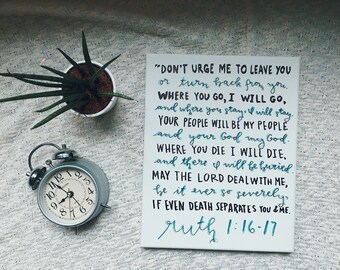 "DON'T URGE ME TO LEAVE YOU
or turn back from you.
WHERE YOU GO, I WILL GO,
and where you stay, i will stay.
YOUR PEOPLE WILL BE MY PEOPLE
and your God my God.
WHERE YOU DIE I WILL DIE,
and there i will be buried.
MAY THE LORD DEAL WITH ME,
be it ever so severely,
IF EVEN DEATH SEPARATES YOU & ME.
ruth 1:16-17